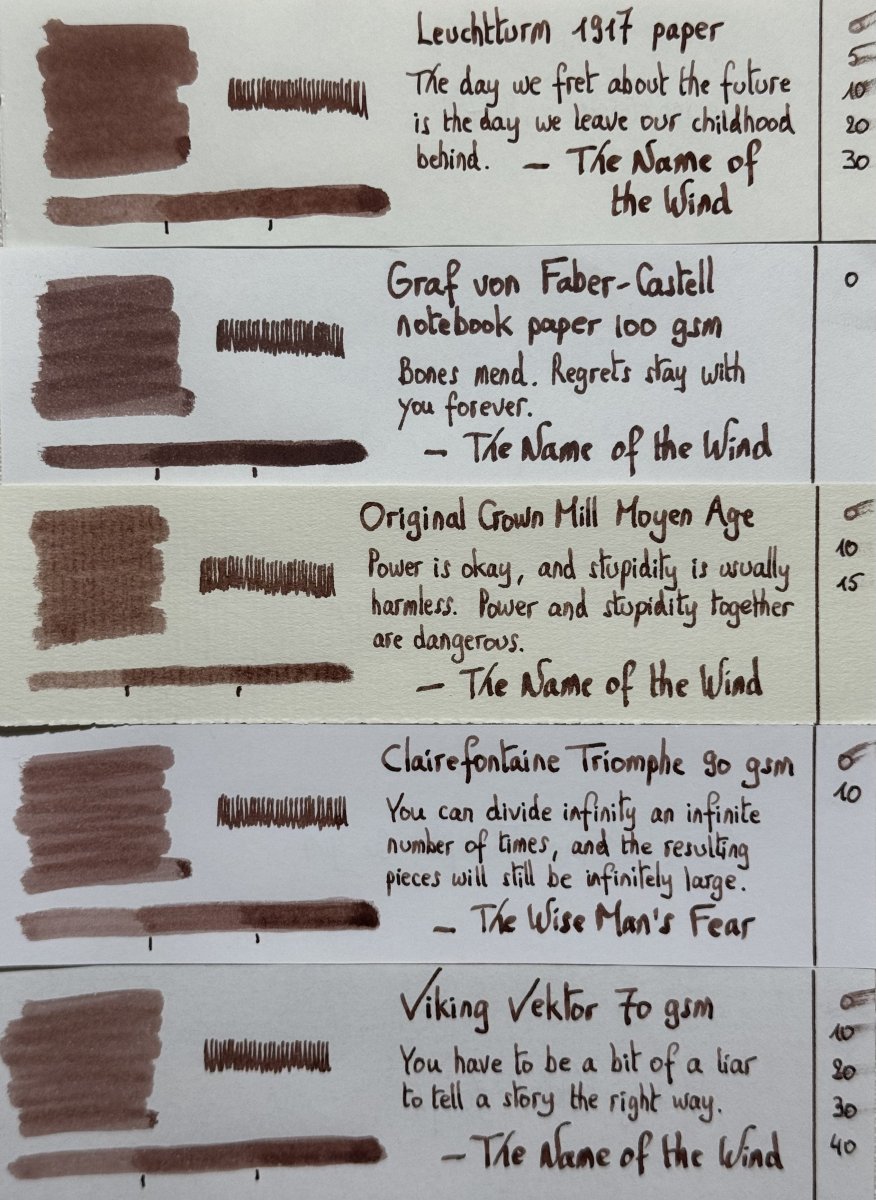 Leuchtturm 1917 paper
The day we fret about the future
is the day we leave our childhood
behind. — The Name of
the Wind
0
5
10
20
30
Graf von Faber-Castell
notebook paper 100 gsm
Bones mend. Regrets stay with
you forever.
— The Name of the Wind
0
Original Crown Mill Moyen Age
Power is okay, and stupidity is usually
harmless. Power and stupidity together
are dangerous.
— The Name of the Wind
0
10
15
Clairefontaine Triomphe 90 gsm
You can divide infinity an infinite
number of times, and the resulting
pieces will still be infinitely large.
— The Wise Man's Fear
0
10
Viking Vektor 70 gsm
You have to be a bit of a liar
to tell a story the right way.
— The Name of the Wind
0
10
20
30
40